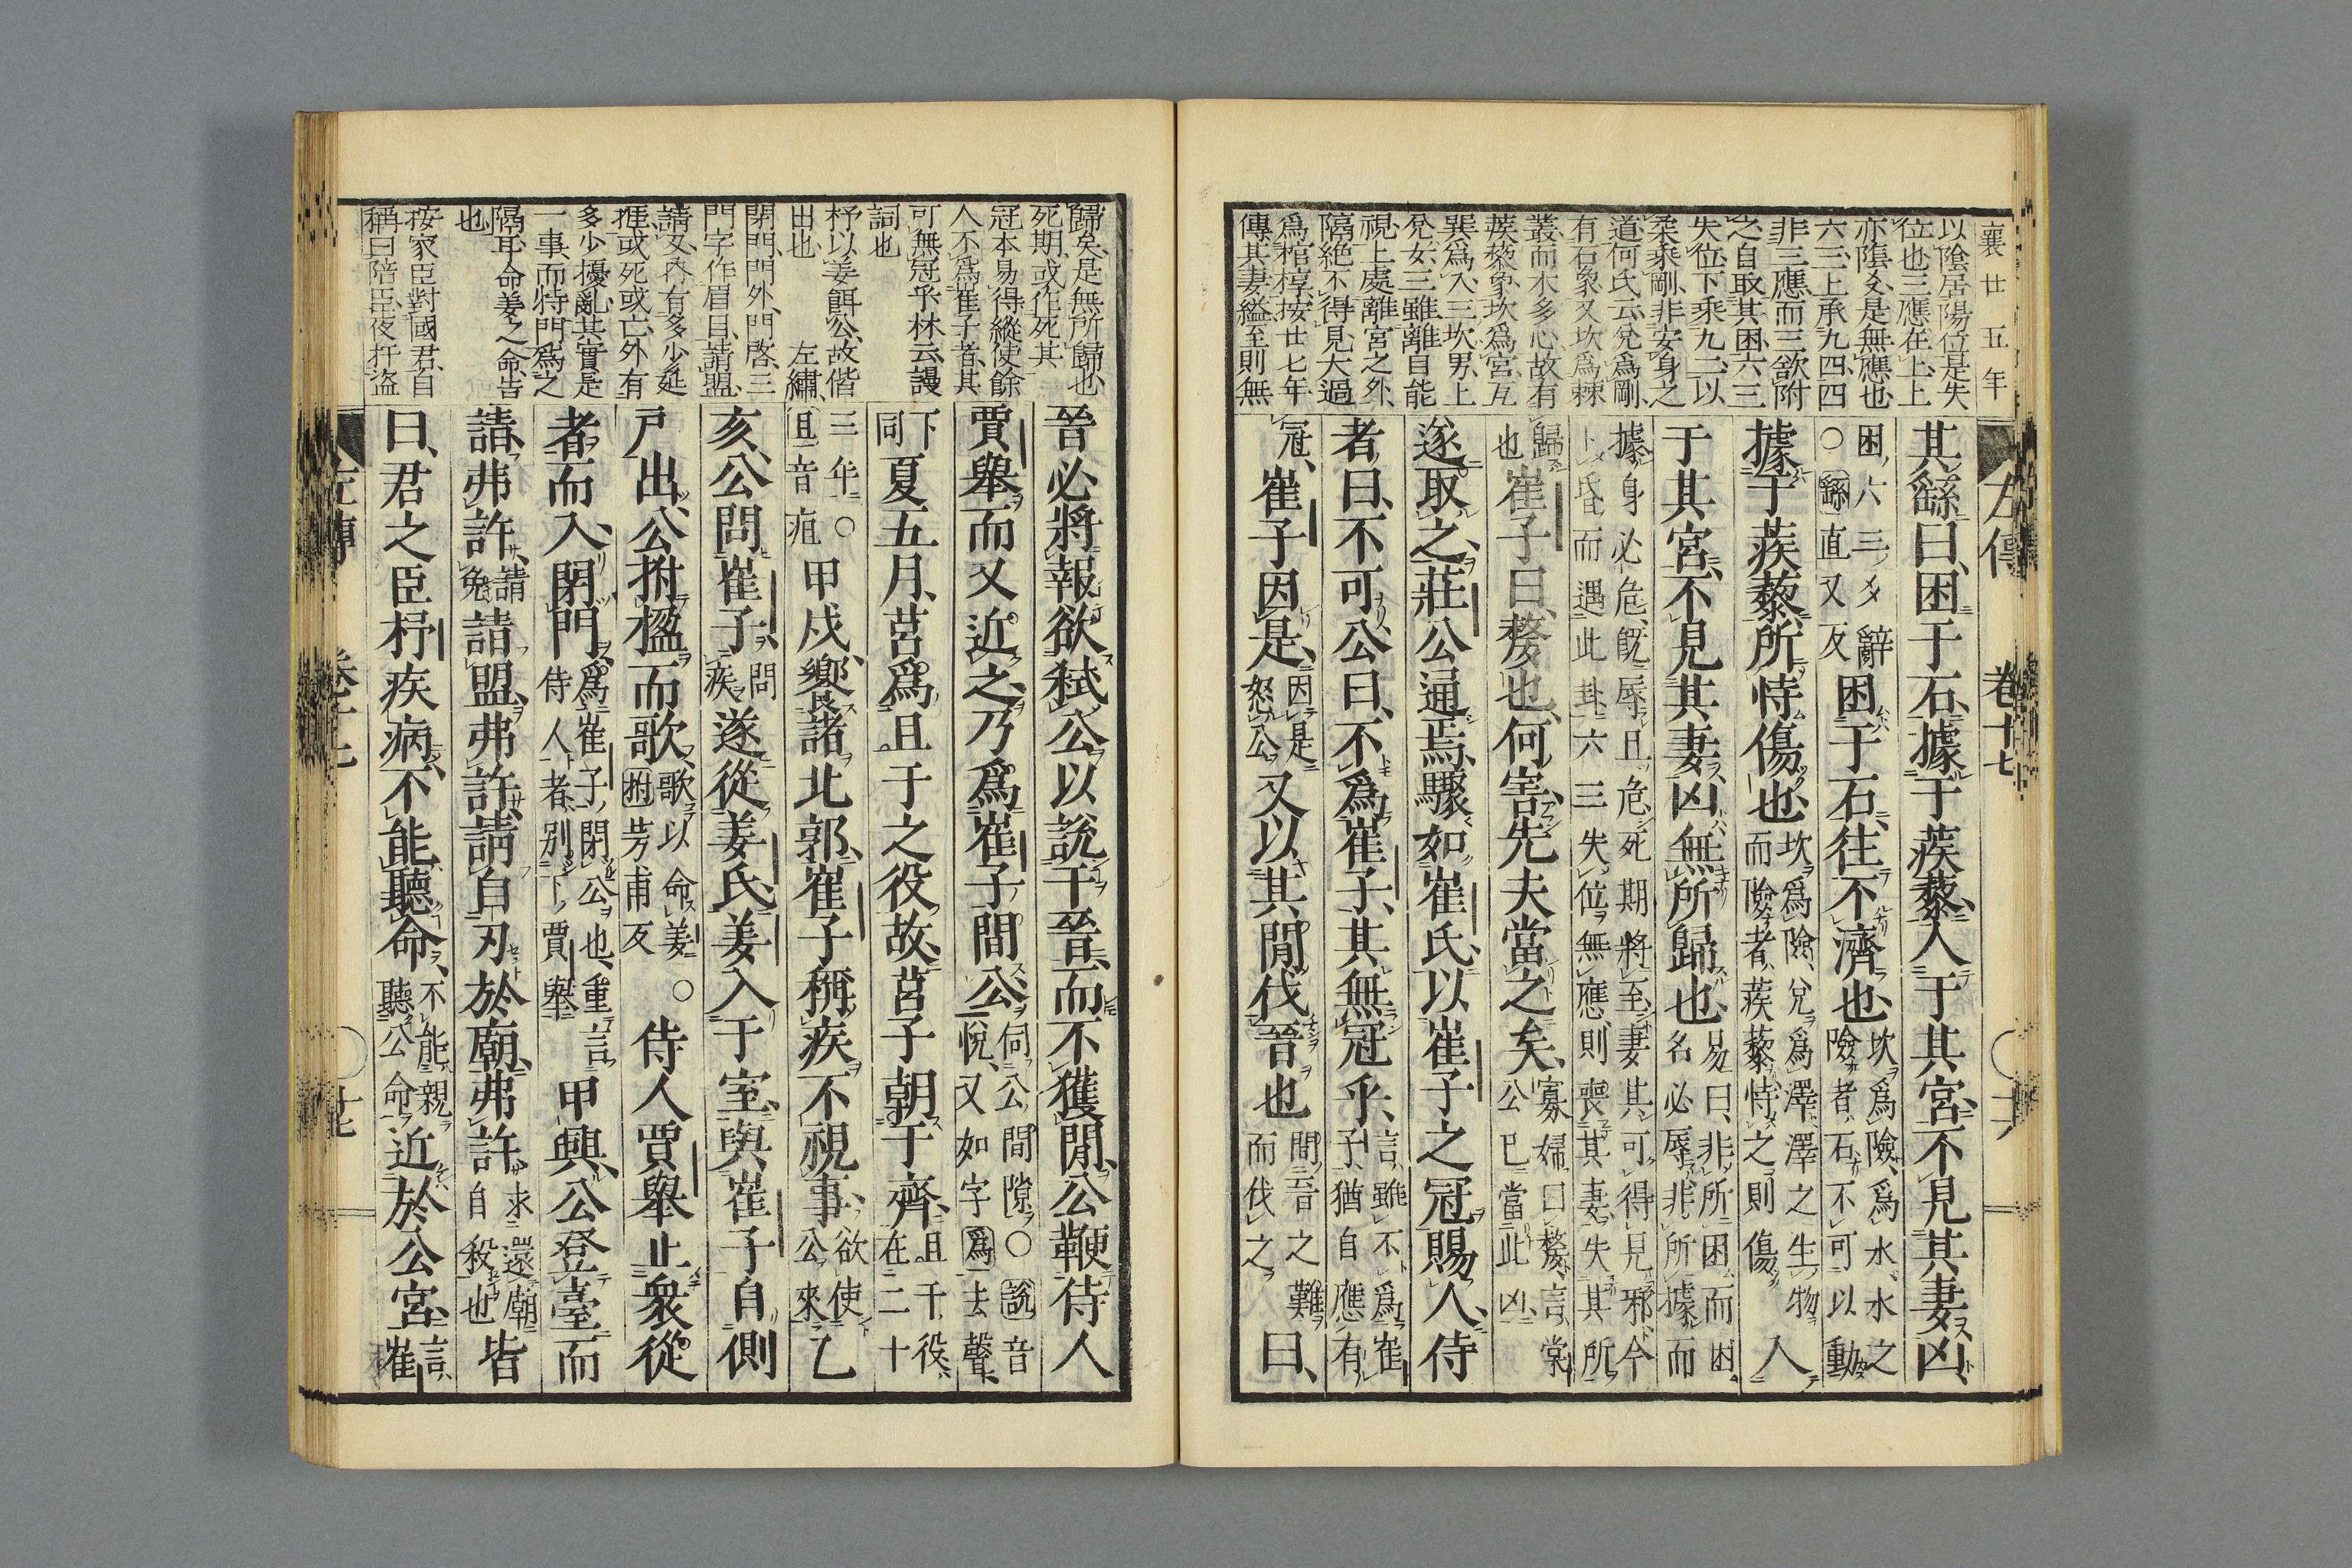 襄廿五年
以陰居陽位是失
位也三應在上上
亦陰爻是無應也
六三上承九四四
非三應而三欲附
之自取其困六三
失位下乘九二以
柔乘剛非安身之
道何氏云兌爲剛
有石象又坎爲棘
叢而木多心故有
蒺藜象坎爲宮互
巽爲入三坎男上
兌女三雖離自能
視上處離宮之外
隔絶不得見大過
爲棺椁按廿七年
傳其妻縊至則無
左傳 卷十七
其繇曰、困于石、據于蒺藜、入于其宮、不見其妻、凶、
困六三爻辭○繇直又反困于石、往不濟也、坎爲險、爲水、水之險者、石、不可以動
據于蒺藜、所恃傷也、坎爲險、兌爲澤、澤之生物而險者、蒺藜、恃之則傷入
于其宮、不見其妻、凶、無所歸也、易曰、非所困而困、名必辱、非所據而
據、身必危、旣辱且危、死期將至、妻其可得見邪、今卜昏而遇此卦、六三失位無應、則喪其妻、失其所
歸也崔子曰、嫠也、何害、先夫當之矣、寡婦曰嫠、言棠公已當此凶
遂取之、莊公通焉、驟如崔氏、以崔子之冠賜人、侍
者曰、不可、公曰、不爲崔子、其無冠乎、言雖不爲崔子、猶自應有
冠、崔子因是、因是怒公又以其間伐晉也間晉之難而伐之曰、
歸矣是無所歸也
死期或作死其
冠本易得縱使餘
人不爲崔子者其
可無冠乎林云謾
詞也
杼以姜餌公故偕
出也 左繡
閉門門外門啓三
門字作眉目請盟
請又內有多少延
捱或死或亡外有
多少擾亂其實是
一事而特門爲之
隔耳命姜之命皆
也
按家臣對國君自
稱曰陪臣夜扞盗
晉必將報、欲弑公以說于晉、而不獲間、公鞭侍人
賈舉、而又近之、乃爲崔子間公、伺公間隙○說音悅、又如字爲去聲、
下同夏五月、莒爲且于之役故、莒子朝于齊、且于役、在二十
三年○且音疽甲戌、饗諸北郭、崔子稱疾不視事、欲使公來乙
亥、公問崔子、問疾遂從姜氏、姜入于室、與崔子自側
戶出、公拊楹而歌、歌以命姜○拊芳甫反侍人賈舉止衆從
者而入、閉門、爲崔子閉公也、重言侍人者、別下賈舉甲興、公登臺而
請、弗許、請免請盟、弗許、請自刃於廟、弗許、求還廟自殺也皆
曰、君之臣杼疾病、不能聽命、不能親聽公命近於公宮、言崔
左傳 卷十七 十七